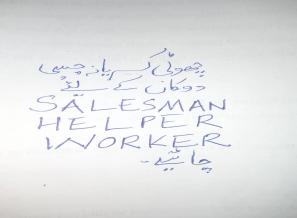 چھوٹی کریانہ جیسی
دوکان کے لیے
SALESMAN
HELPER
WORKER
چاہیے۔